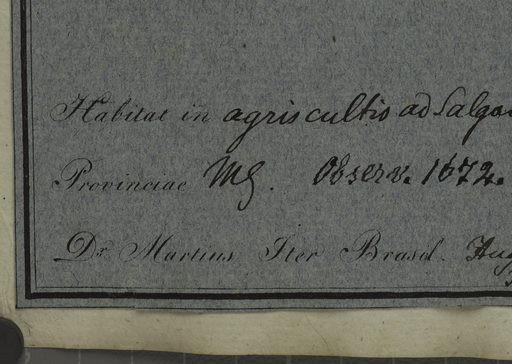 Habitat in agris cultis ad Salgad
Provinciae MG. Observ. 1672.
Dr. Martius Iter Brasil. Aug